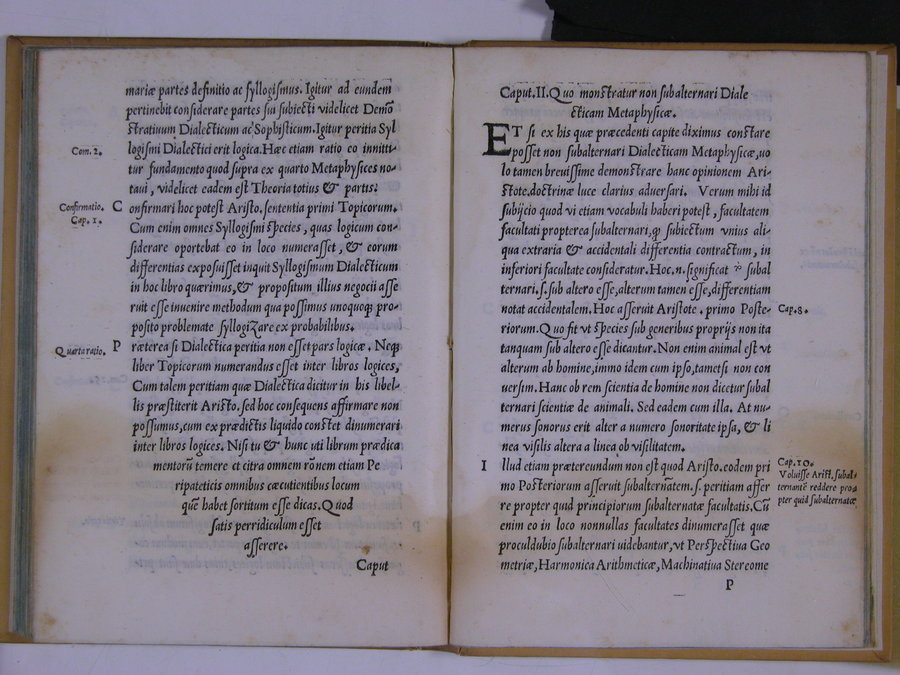 mariæ partes definitio ac syllogismus. Igitur ad eundem
pertinebit considerare partes sui subiecti videlicet Demō
stratiuum Dialecticum ac Sophisticum. Igitur peritia Syl
Com. 2.
logismi Dialectici erit logica. Hæc etiam ratio eo innitti-
tur fundamento quod supra ex quarto Metaphysices no-
taui, videlicet eadem est Theoria totius & partis.
Confirmatio.
Cap. 1.
Confirmari hoc potest Aristo. sententia primi Topicorum.
Cum enim omnes Syllogismi species, quas logicum con-
siderare oportebat eo in loco numerasset, & eorum
differentias exposuisset inquit Syllogismum Dialecticum
in hoc libro quærimus, & propositum illius negocii asse
ruit esse inuenire methodum qua possimus unoquoqȝ pro-
posito problemate syllogizare ex probabilibus.
Quarta ratio.
Præterea si Dialectica peritia non esset pars logicæ. Neqȝ
liber Topicorum numerandus esset inter libros logices,
Cum talem peritiam quæ Dialectica dicitur in his libel-
lis præstiterit Aristo. sed hoc consequens affirmare non
possumus, cum ex prædictis liquido constet dinumerari
inter libros logices. Nisi tu & hunc uti librum prædica
mentorū temere et citra omnem rōnem etiam Pe
ripateticis omnibus cæcutientibus locum
quē habet sortitum esse dicas. Quod
satis perridiculum esset
asserere.
Caput
Caput. II. Quo monstratur non subalternari Diale
cticam Metaphysicæ.
ET si ex his quæ præcedenti capite diximus constare
posset non subalternari Dialecticam Metaphysicæ, uo
lo tamen breuissime demonstrare hanc opinionem Ari-
stote. doctrinæ luce clarius aduersari. Verum mihi id
subijcio quod vi etiam vocabuli haberi potest, facultatem
facultati propterea subalternari, qȝ subiectum vnius ali-
qua extraria & accidentali differentia contractum, in
inferiori facultate consideratur. Hoc. n. significat subal
ternari. s. sub altero esse, alterum tamen esse, differentiam
notat accidentalem. Hoc asseruit Aristote. primo Poste-
Cap. 8.
riorum. Quo fit vt species sub generibus proprijs non ita
tanquam sub altero esse dicantur. Non enim animal est vt
alterum ab homine, immo idem cum ipso, tametsi non con
uersim. Hanc ob rem scientia de homine non dicetur subal
ternari scientiæ de animali. Sed eadem cum illa. At nu-
merus sonorus erit alter a numero sonoritate ipsa, & li
nea visilis altera a linea ob visilitatem.
Illud etiam prætereundum non est quod Aristo. eodem pri
Cap. 10.
Voluisse Arist. subal-
ternantē reddere pro-
pter quid subalternatæ
mo Posteriorum asseruit subalternātem. s. peritiam affer
re propter quid principiorum subalternatæ facultatis. Cū
enim eo in loco nonnullas facultates dinumerasset quæ
proculdubio subalternari uidebantur, vt Perspectiua Geo
metriæ, Harmonica Arithmeticæ, Machinatiua Stereome
P